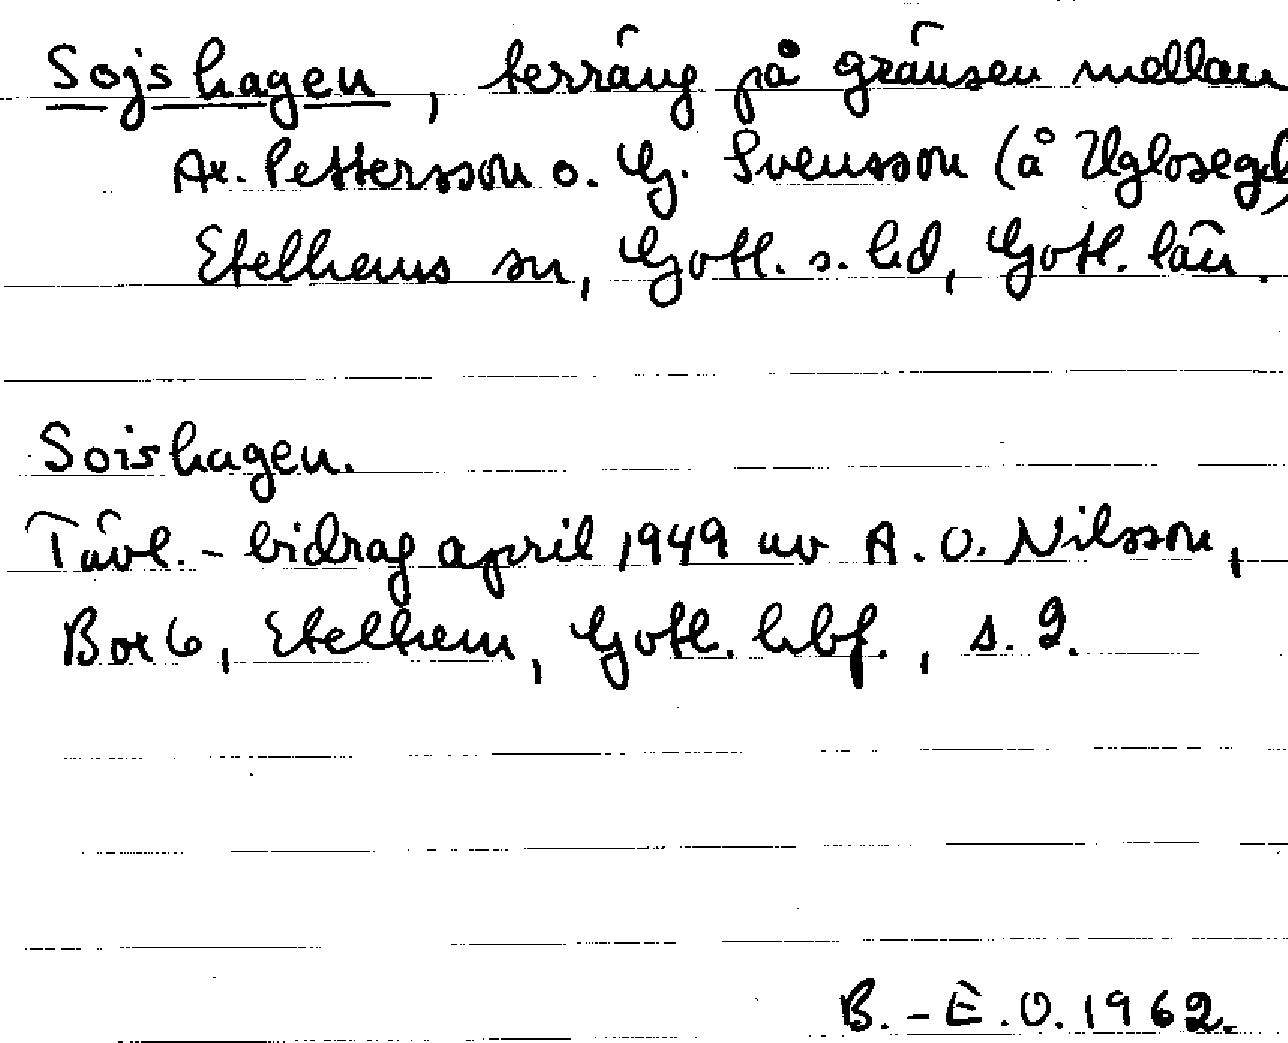 Sojshagen, terräng på gränsen mellan
Ax. Pettersson o. G. Svensson (å Uglosegd)
Etelhems sn, Gotl. s. hd, Gotl. län.
Soishagen.
Tävl.-bidrag april 1949 av A. O. Nilsson,
Box 6, Etelhem, Gotl. hbf., s. 2.
B.-E.O. 1962.